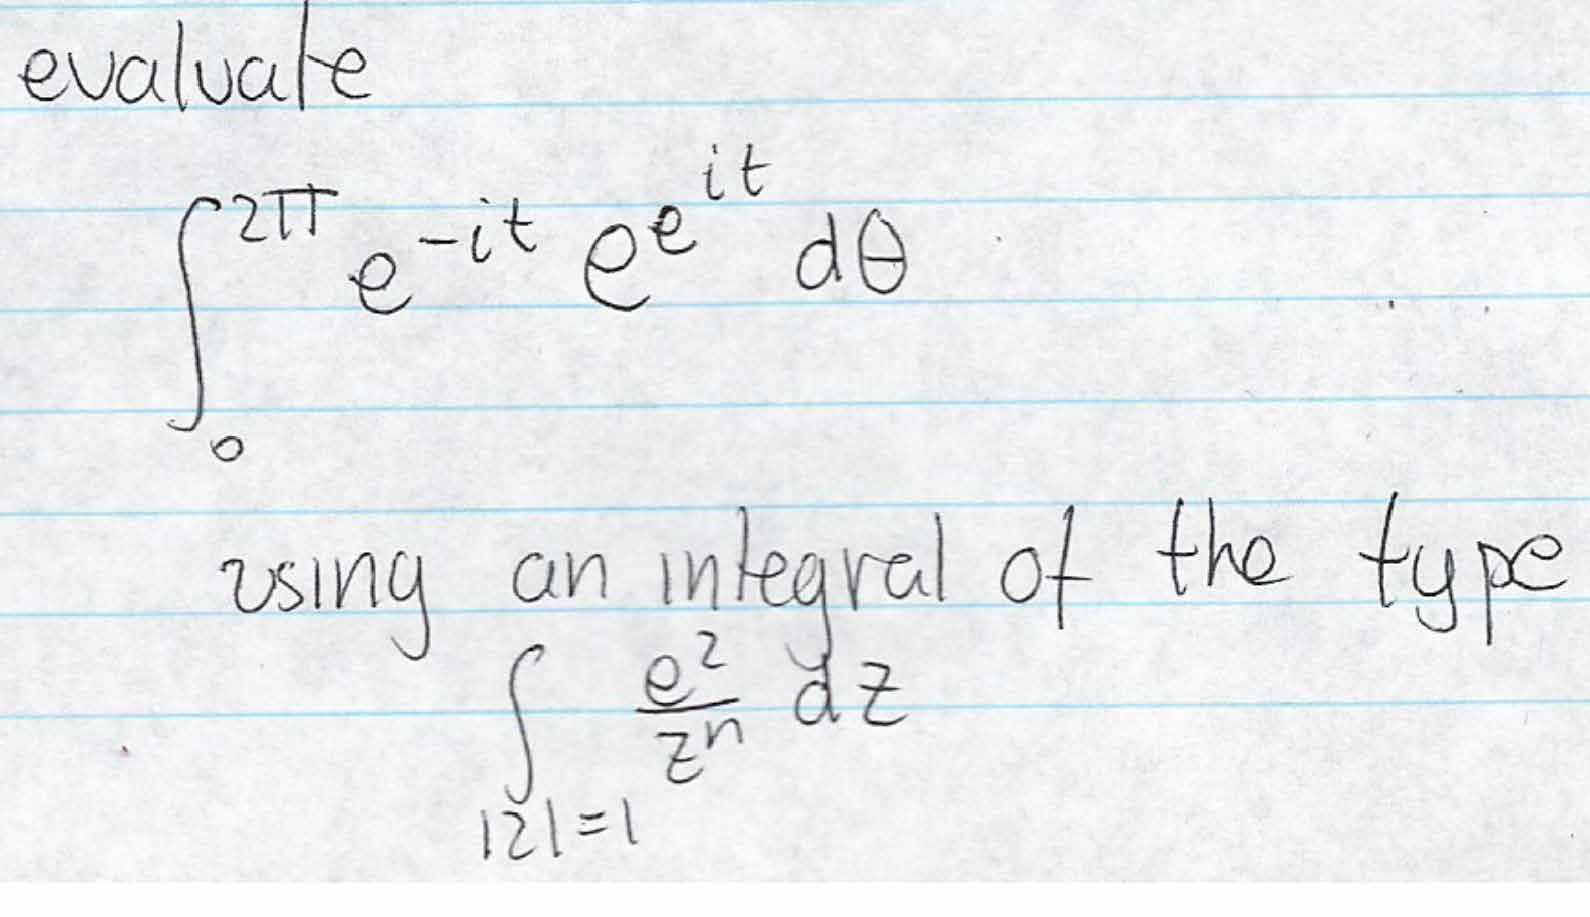 evaluate
∫₀^{2π} e^{-it} e^{e^{it}} dθ
using an integral of the type
∫_{|z|=1} e^z/z^n dz